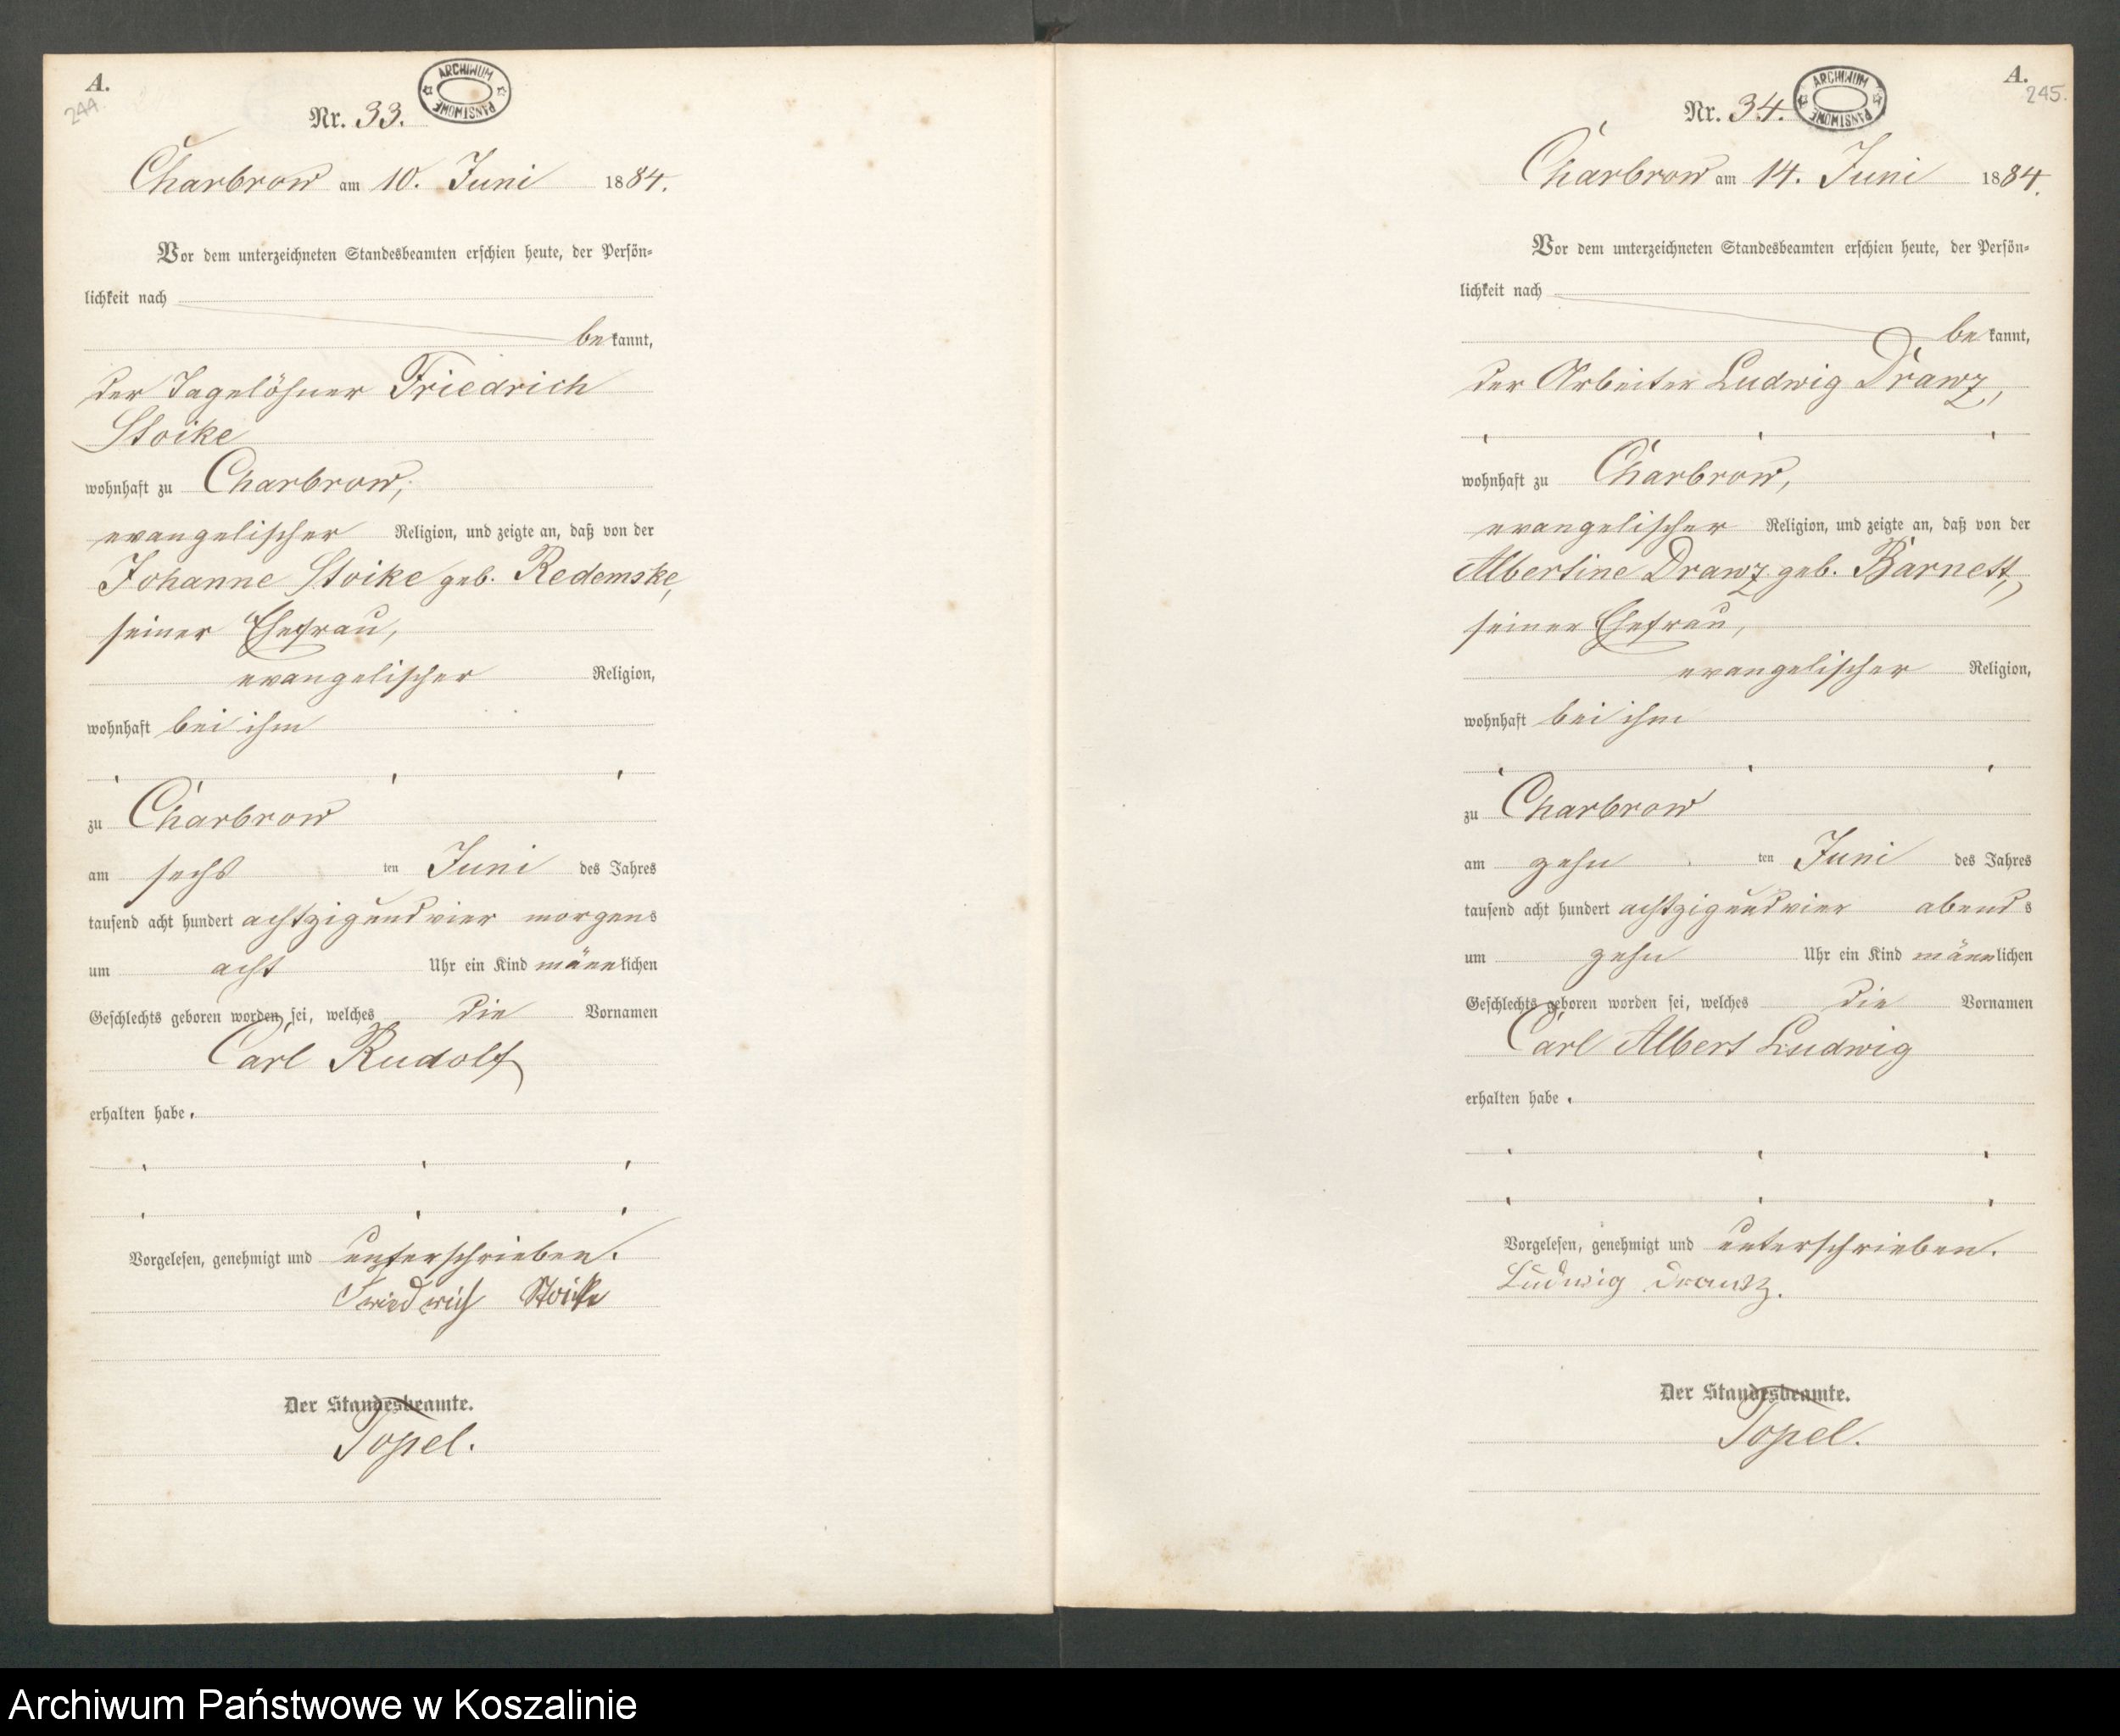 A.
244.
Nr. 33.
ARCHIWUM PAŃSTWOWE
Charbrow am 10. Juni 1884.
Vor dem unterzeichneten Standesbeamten erschien heute, der Persön-
lichkeit nach
bekannt,
der Tagelöhner Friedrich
Stoike
wohnhaft zu Charbrow,
evangelischer Religion, und zeigte an, daß von der
Johanne Stoike geb. Redemske,
seiner Ehefrau,
evangelischer Religion,
wohnhaft bei ihm
zu Charbrow
am sechsten Juni des Jahres
tausend acht hundert achtzigundvier morgens
um acht Uhr ein Kind männlichen
Geschlechts geboren worden sei, welches die Vornamen
Carl Rudolf
erhalten habe.
Vorgelesen, genehmigt und unterschrieben.
Friedrich Stoike
Der Standesbeamte.
Topel.
A.
245.
Nr. 34.
ARCHIWUM PAŃSTWOWE
Charbrow am 14. Juni 1884.
Vor dem unterzeichneten Standesbeamten erschien heute, der Persön-
lichkeit nach
bekannt,
der Arbeiter Ludwig Drawz,
wohnhaft zu Charbrow,
evangelischer Religion, und zeigte an, daß von der
Albertine Drawz geb. Barnett,
seiner Ehefrau,
evangelischer Religion,
wohnhaft bei ihm
zu Charbrow
am zehnten Juni des Jahres
tausend acht hundert achtzigundvier abends
um zehn Uhr ein Kind männlichen
Geschlechts geboren worden sei, welches die Vornamen
Carl Albert Ludwig
erhalten habe.
Vorgelesen, genehmigt und unterschrieben.
Ludwig Drawz.
Der Standesbeamte.
Topel.
Archiwum Państwowe w Koszalinie